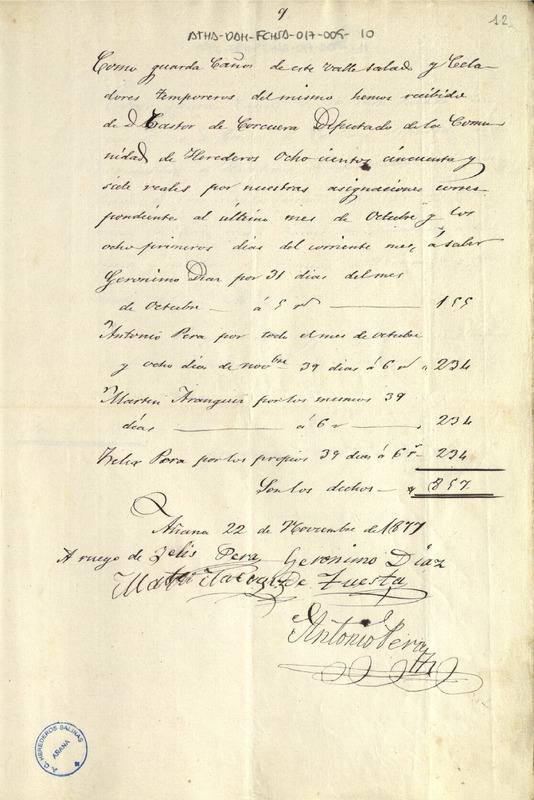 9
12
ATHA-DAH-FCHSA-017-005-10
Como guarda Caños de este Valle salado y Cela-
dores temporeros del mismo hemos recibido
de D Castor de Corcuera Diputado de la Comu
nidad de Herederos Ocho cientos cincuenta y
siete reales por nuestras asignaciones corres
pondientes al último mes de Octubre y los
ocho primeros dias del corriente mes, á saber
Geronimo Diaz por 31 dias del mes
de Octubre — á 5 rs — 155
Antonio Pera por todo el mes de octubre
y ocho dias de novbre 39 dias á 6 rs " 234
Martin Aranguiz por los mismos 39
dias — á 6 rs — 234
Felix Pera por los propios 39 dias á 6 rs 234
Son los dichos — 857
Añana 22 de Noviembre de 1877
A ruego de Felis Pera Geronimo Díaz
de Tuesta
Antonio Pera
C. HEREDEROS SALINAS
AÑANA